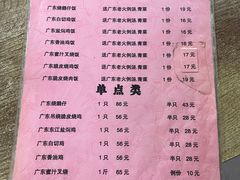 广东烧腊仔饭 送广东老火例汤.青菜 1份 19 元
广东白切鸡饭 送广东老火例汤.青菜 1份 16 元
广东盐焗鸡饭 送广东老火例汤.青菜 1份 16 元
广东香油鸡饭 送广东老火例汤.青菜 1份 元
广东蜜汁叉饭 送广东老火例汤.青菜 1份 17 元
广东脆皮烧鸡饭 送广东老火例汤.青菜 1份 17 元
广东脆皮烧肉饭 送广东老火例汤.青菜 1份 19 元
单点类
广东烧腊仔 1 只 86 元 半只 43 元
广东吊烧脆皮烧鸡 1 只 56 元 半只 28 元
广东东江盐焗鸡 1 只 56 元 半只 28 元
广东白切鸡 1 只 56 元 半只 28 元
广东香油鸡 1 只 56 元 半只 28 元
广东蜜汁叉烧 1 斤 65 元 例份 10 元